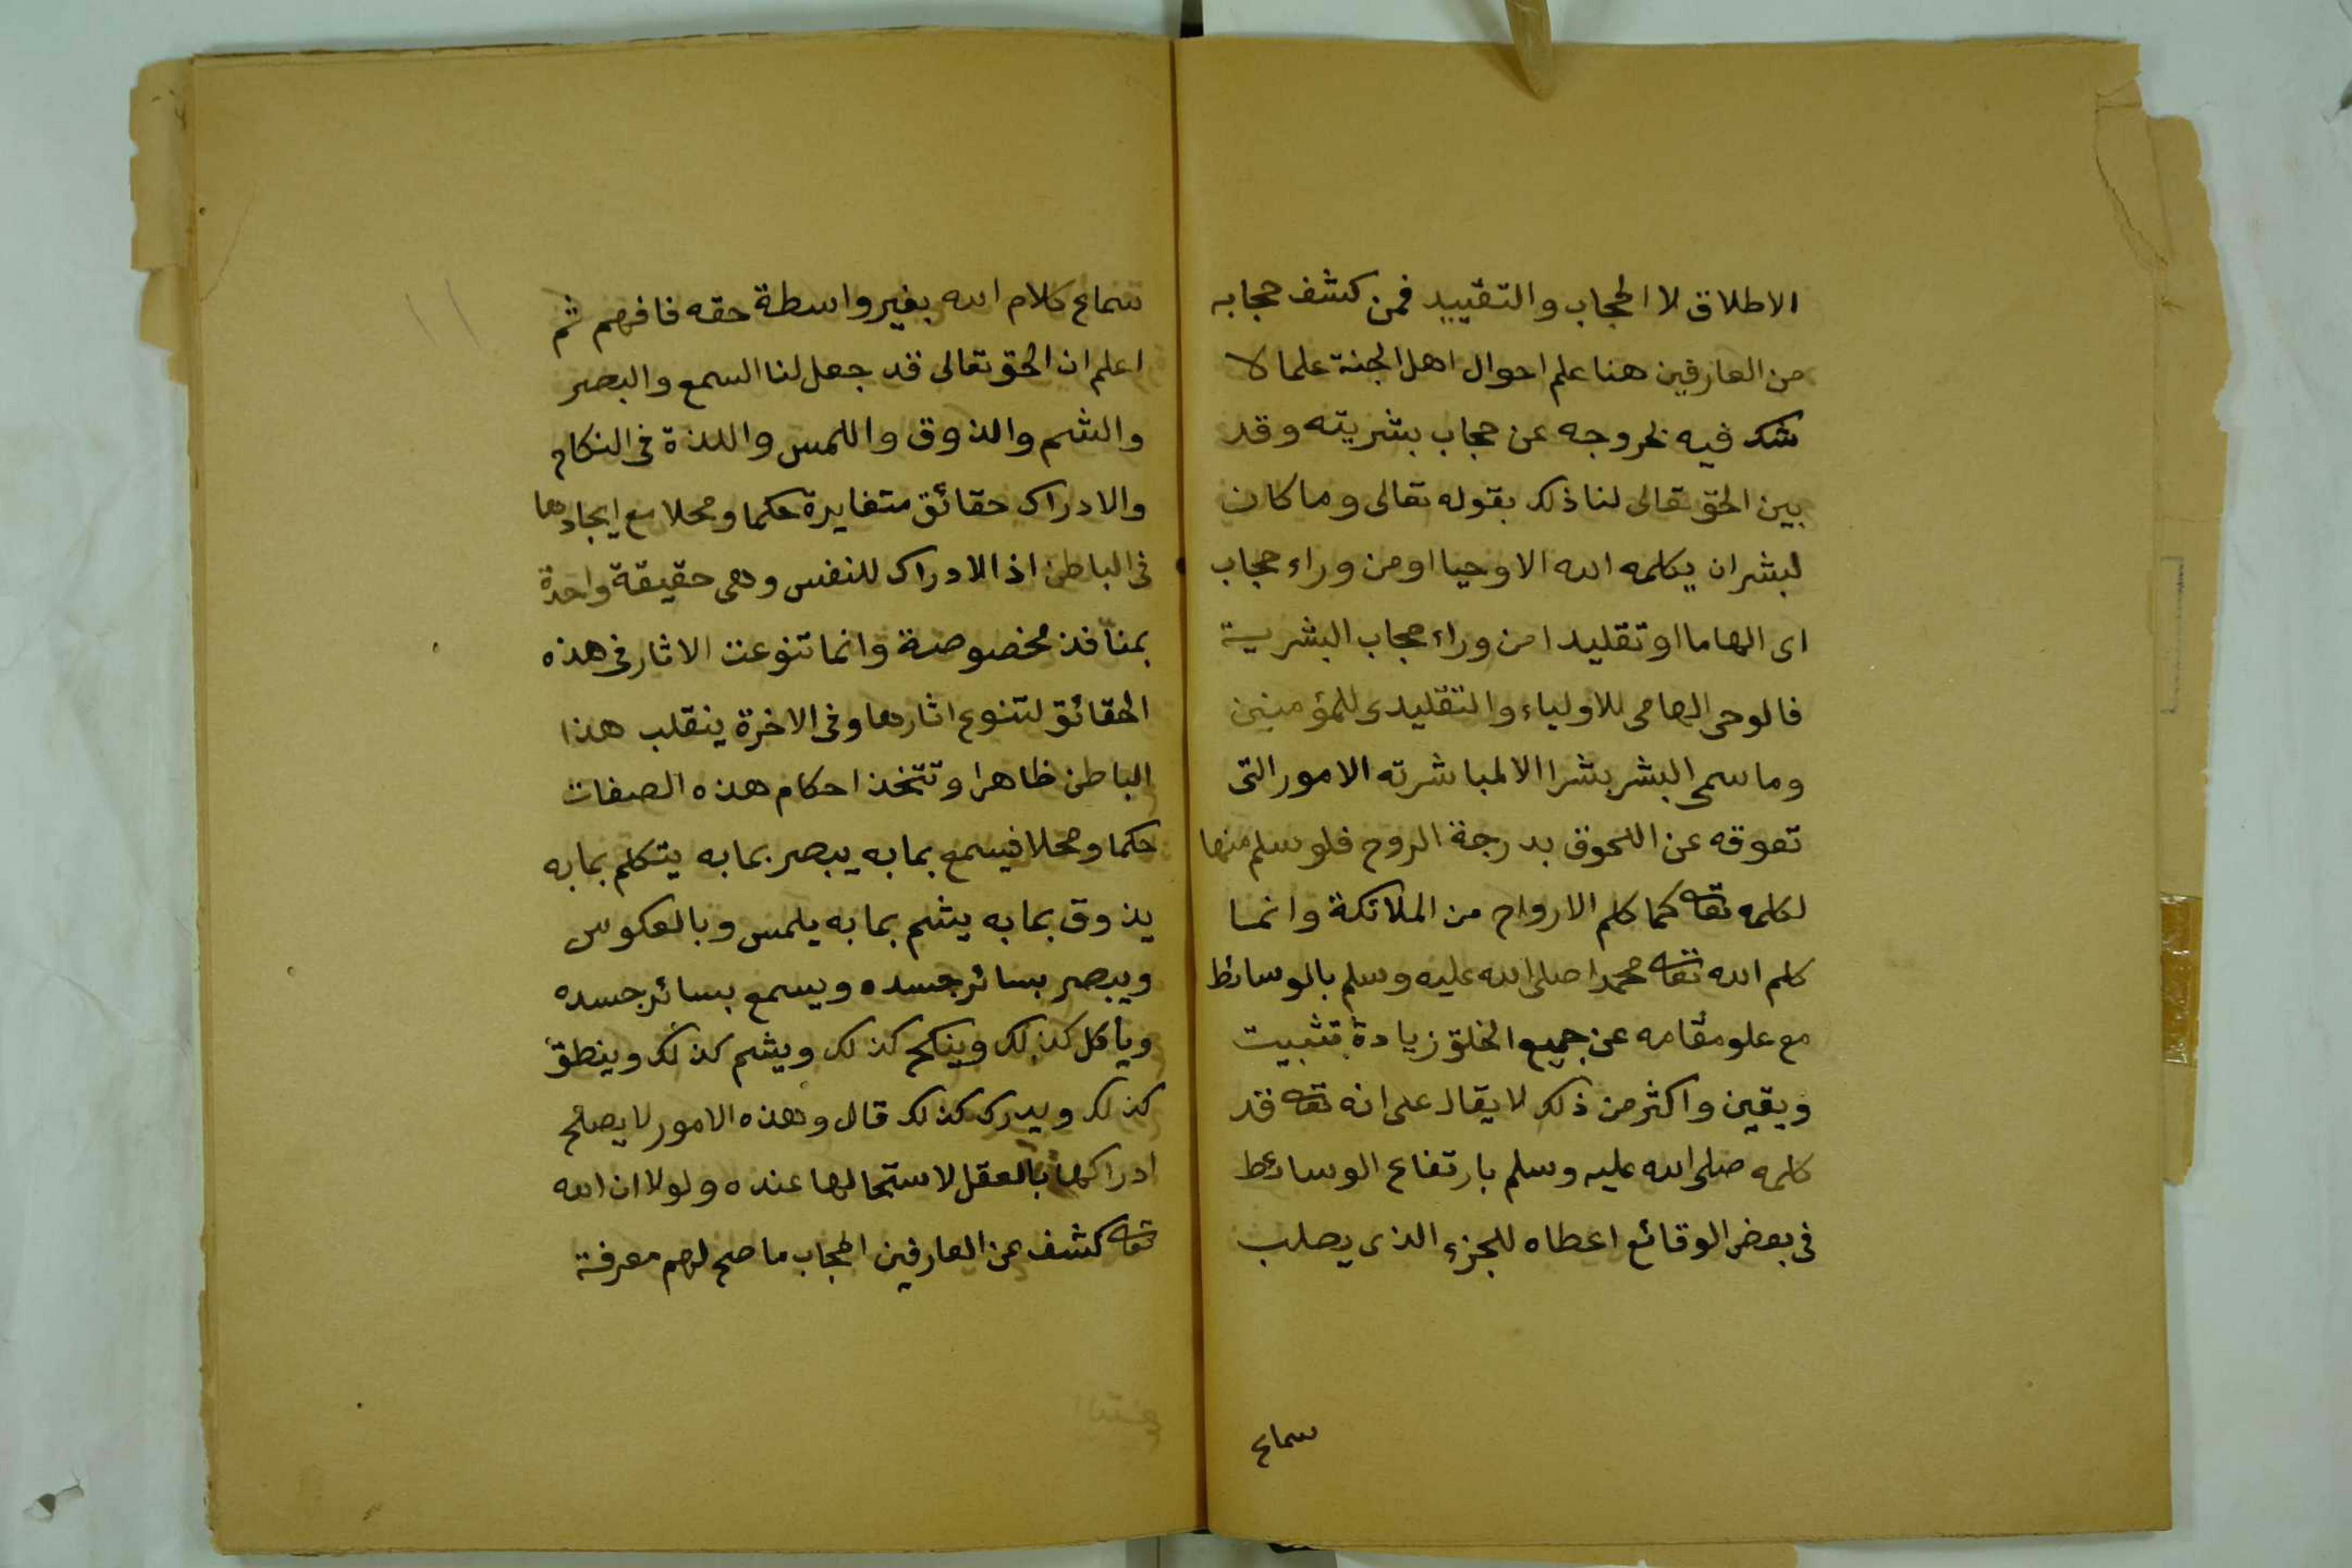 الاطلاق لا الحجاب والتقييد فمن كشف حجابه
من العارفين هنا علم احوال اهل الجنة علما لا
شك فيه لخروجه عن حجاب بشريته وقد
بين الحق تعالى لنا ذلك بقوله تعالى وما كان
لبشر ان يكلمه الله الا وحيا او من وراء حجاب
اى الهاما او تقليدا من وراء حجاب البشرية
فالوحى الهامى للاولياء والتقليدى للمؤمنين
وما سمى البشر بشرا الا لمباشرته الامور التى
تعوقه عن اللحوق بدرجة الروح فلو سلم منها
لكلمه تعا كما كلم الارواح من الملائكة وانما
كلم الله تعا محمدا صلى الله عليه وسلم بالوسائط
مع علو مقامه عن جميع الخلق زيادة تثبيت
ويقين واكثر من ذلك لا يقال على انه تعا قد
كلمه صلى الله عليه وسلم بارتفاع الوسائط
فى بعض الوقائع اعطاه للجزء الذى يصلب
سماع
سماع كلام الله بغير واسطة حقه فافهم ثم
اعلم ان الحق تعالى قد جعل لنا السمع والبصر
والشم والذوق واللمس واللذة فى النكاح
والادراك حقائق متغايرة حكما ومحلا مع ايجادها
فى الباطن اذ الادراك للنفس وهى حقيقة واحدة
بمنافذ مخصوصة وانما تنوعت الاثار فى هذه
الحقائق لتنوع اثارها وفى الاخرة ينقلب هذا
الباطن ظاهرا وتتخذ احكام هذه الصفات
حكما ومحلا فيسمع بما به يبصر بما به يتكلم بما به
يذوق بما به يشم بما به يلمس وبالعكوس
ويبصر بسائر جسده ويسمع بسائر جسده
ويأكل كذلك وينكح كذلك ويشم كذلك وينطق
كذلك ويدرك كذلك قال وهذه الامور لا يصلح
ادراكها بالعقل لاستحالها عنده ولولا ان الله
تعا كشف عن العارفين الحجاب ما صح لهم معرفة